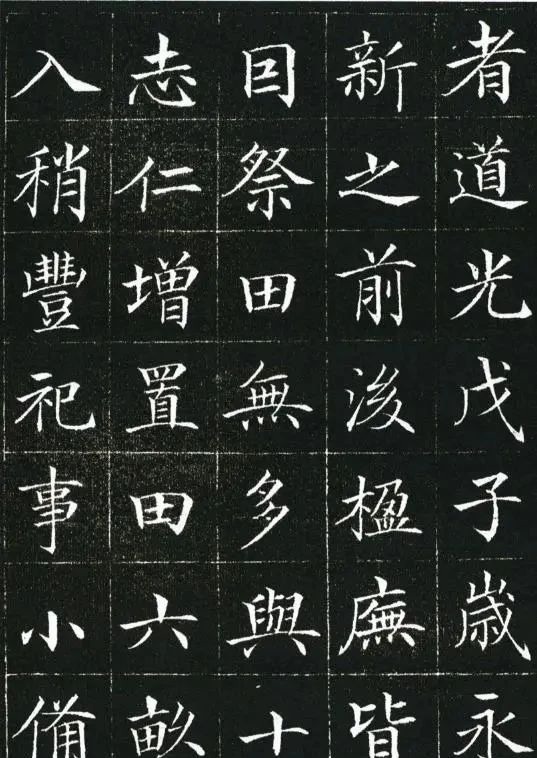 者道光戊子歲永
新之前後楹廡皆
囙祭田無多與十
志仁增置田六畝
入稍豐祀事小備